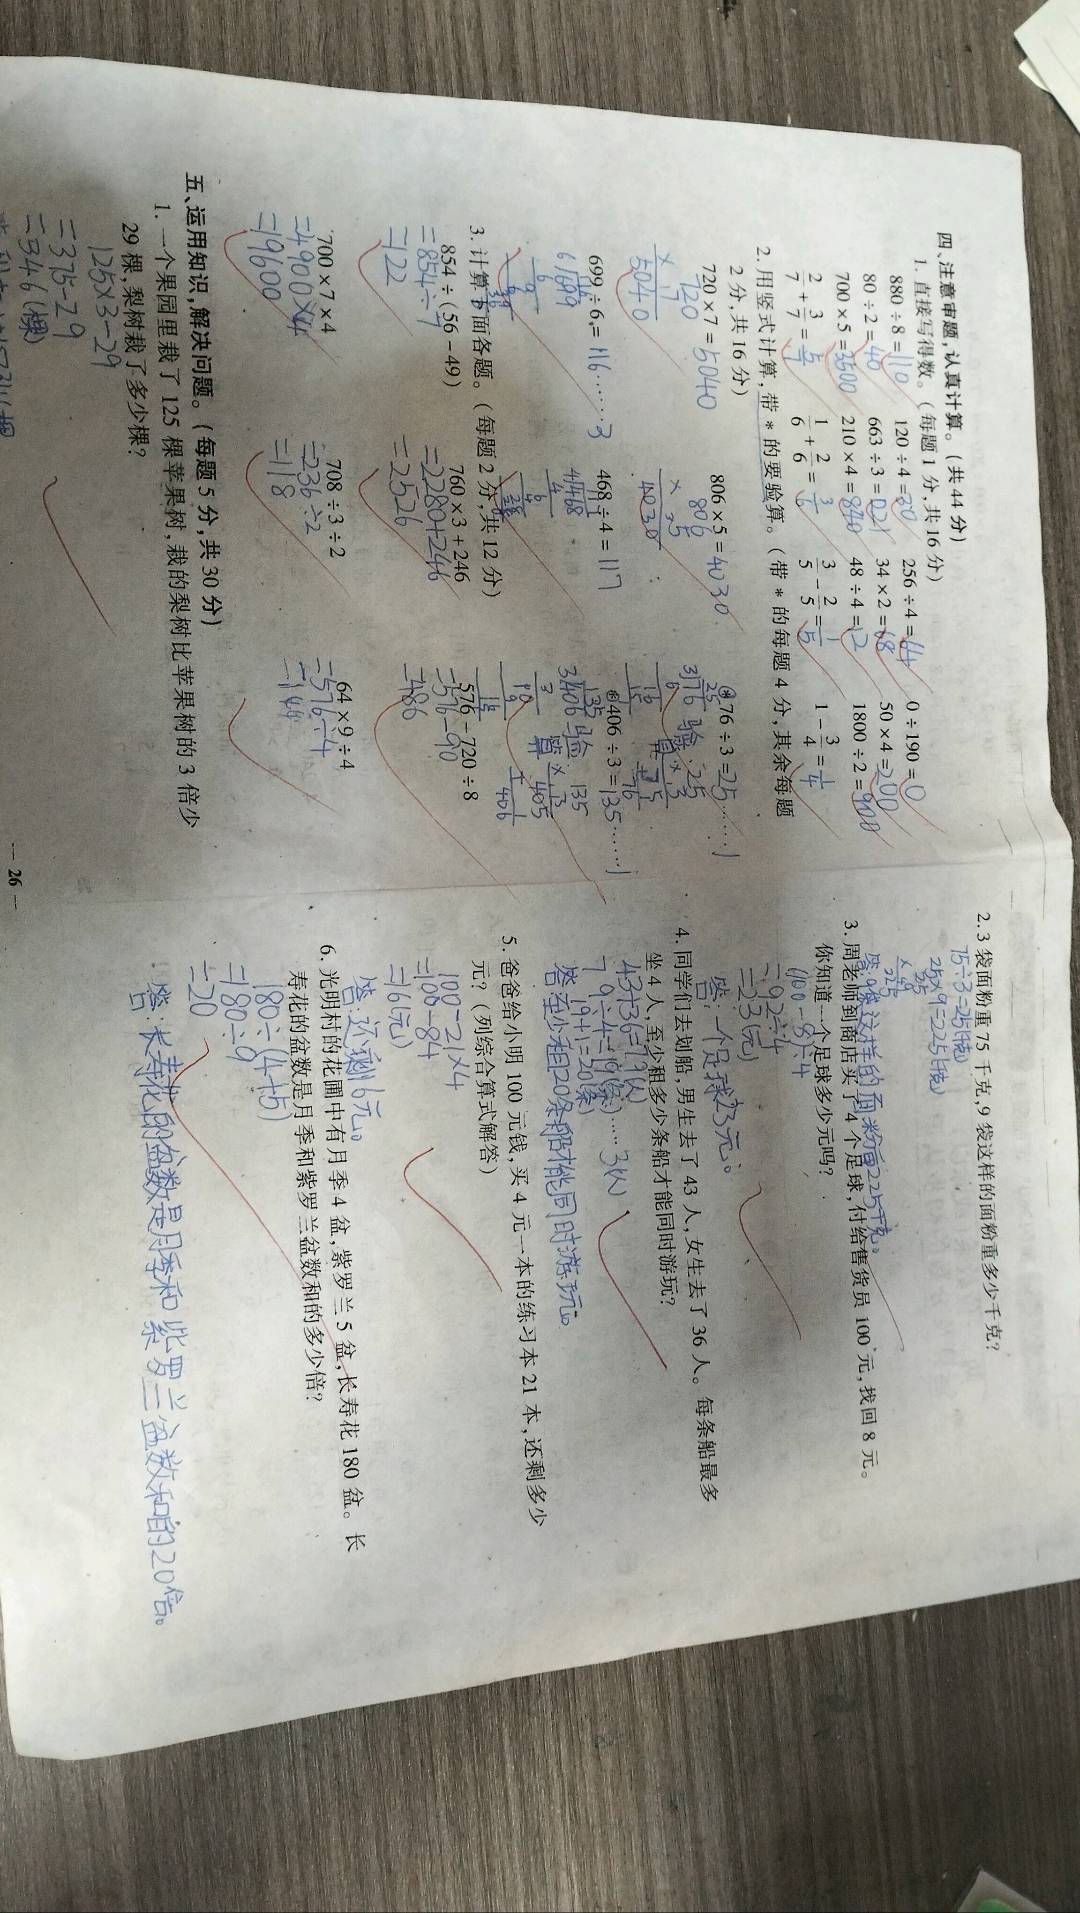 四、注意审题,认真计算。(共 44 分)
1. 直接写得数。(每题 1 分,共 16 分)
880÷8=110 120÷4=30 256÷4=64 0÷190=0
80÷2=40 663÷3=221 34×2=68 50×4=200
700×5=3500 210×4=840 48÷4=12 1800÷2=900
2/7+3/7=5/7 1/6+2/6=3/6 3/5-2/5=1/5 1-3/4=1/4
2. 用竖式计算,带 * 的要验算。(带 * 的每题 4 分,其余每题
2 分,共 16 分)
720×7=5040 806×5=4030 *76÷3=25……1
720
× 7
5040
806
× 5
4030
25
3)76
6
16
15
1
验算
25
× 3
75
+ 1
76
699÷6=116……3 468÷4=117 *406÷3=135……1
6)699
4)468
135
3)406
3
10
9
验算
135
× 3
405
+ 1
406
3. 计算下面各题。(每题 2 分,共 12 分)
854÷(56-49) 760×3+246 576-720÷8
=854÷7 =2280+246 =576-90
=122 =2526 =486
700×7×4 708÷3÷2 64×9÷4
=4900×4 =236÷2 =576÷4
=19600 =118 =144
五、运用知识,解决问题。(每题 5 分,共 30 分)
1. 一个果园里栽了 125 棵苹果树,栽的梨树比苹果树的 3 倍少
29 棵,梨树栽了多少棵?
125×3-29
=375-29
=346(棵)
— 26 —
2. 3 袋面粉重 75 千克,9 袋这样的面粉重多少千克?
75÷3=25(千克)
25×9=225(千克)
答:9袋这样的面粉重225千克。
3. 周老师到商店买了 4 个足球,付给售货员 100 元,找回 8 元。
你知道一个足球多少元吗?
(100-8)÷4
=92÷4
=23(元)
答:一个足球23元。
4. 同学们去划船,男生去了 43 人,女生去了 36 人。每条船最多
坐 4 人,至少租多少条船才能同时游玩?
43+36=79(人)
79÷4=19(条)……3(人)
19+1=20(条)
答:至少租20条船才能同时游玩。
5. 爸爸给小明 100 元钱,买 4 元一本的练习本 21 本,还剩多少
元?(列综合算式解答)
100-21×4
=100-84
=16(元)
答:还剩16元。
6. 光明村的花圃中有月季 4 盆,紫罗兰 5 盆,长寿花 180 盆。长
寿花的盆数是月季和紫罗兰盆数和的多少倍?
180÷(4+5)
=180÷9
=20
答:长寿花的盆数是月季和紫罗兰盆数和的20倍。